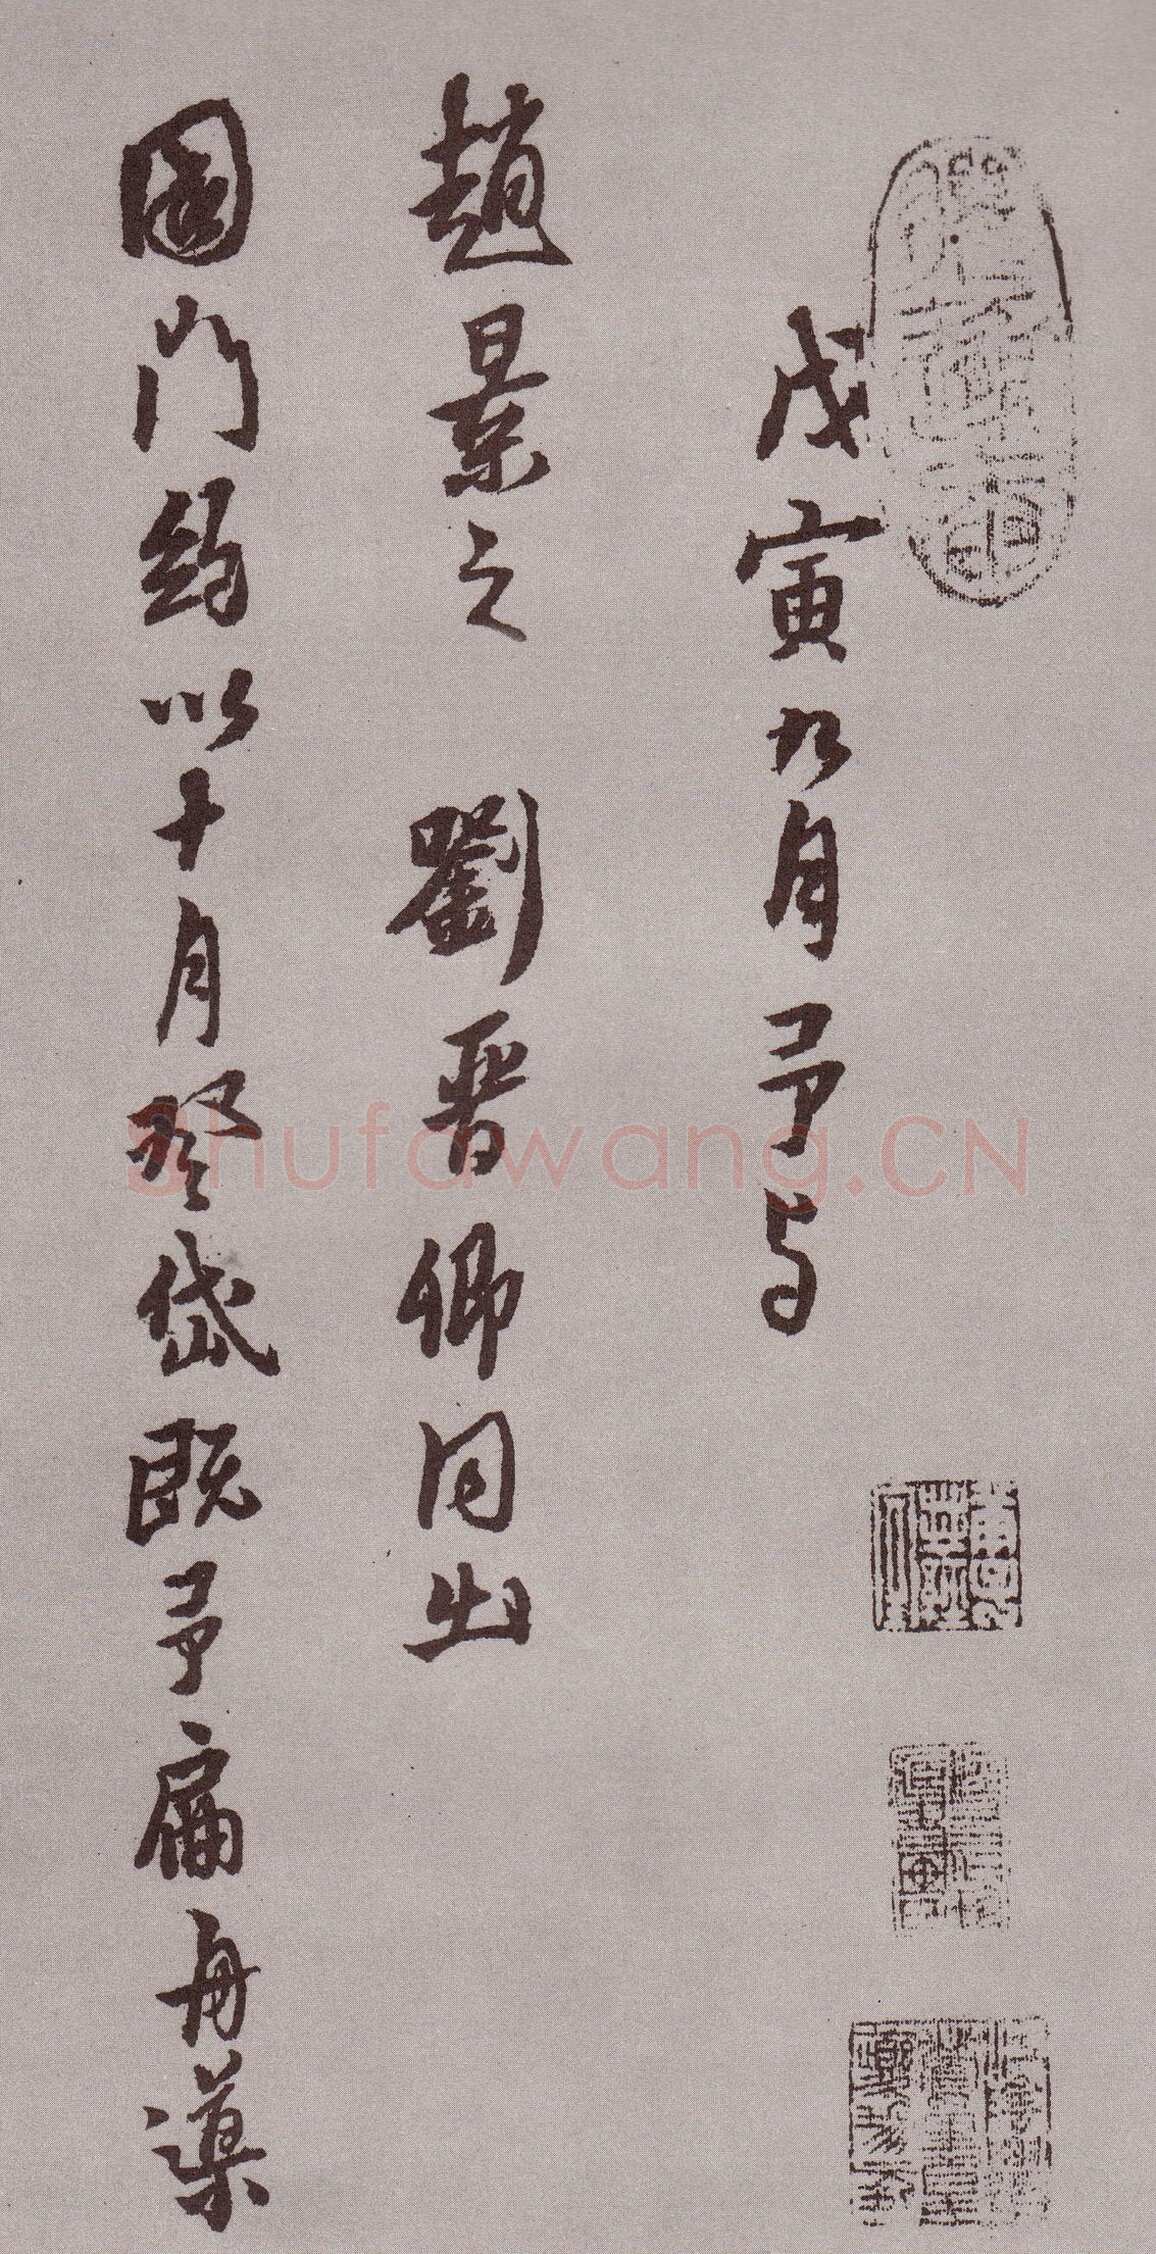 戊寅九月予与
趙景之 劉晋卿同出
國門約以十月登岱既予扁舟渡
Shufawang.CN